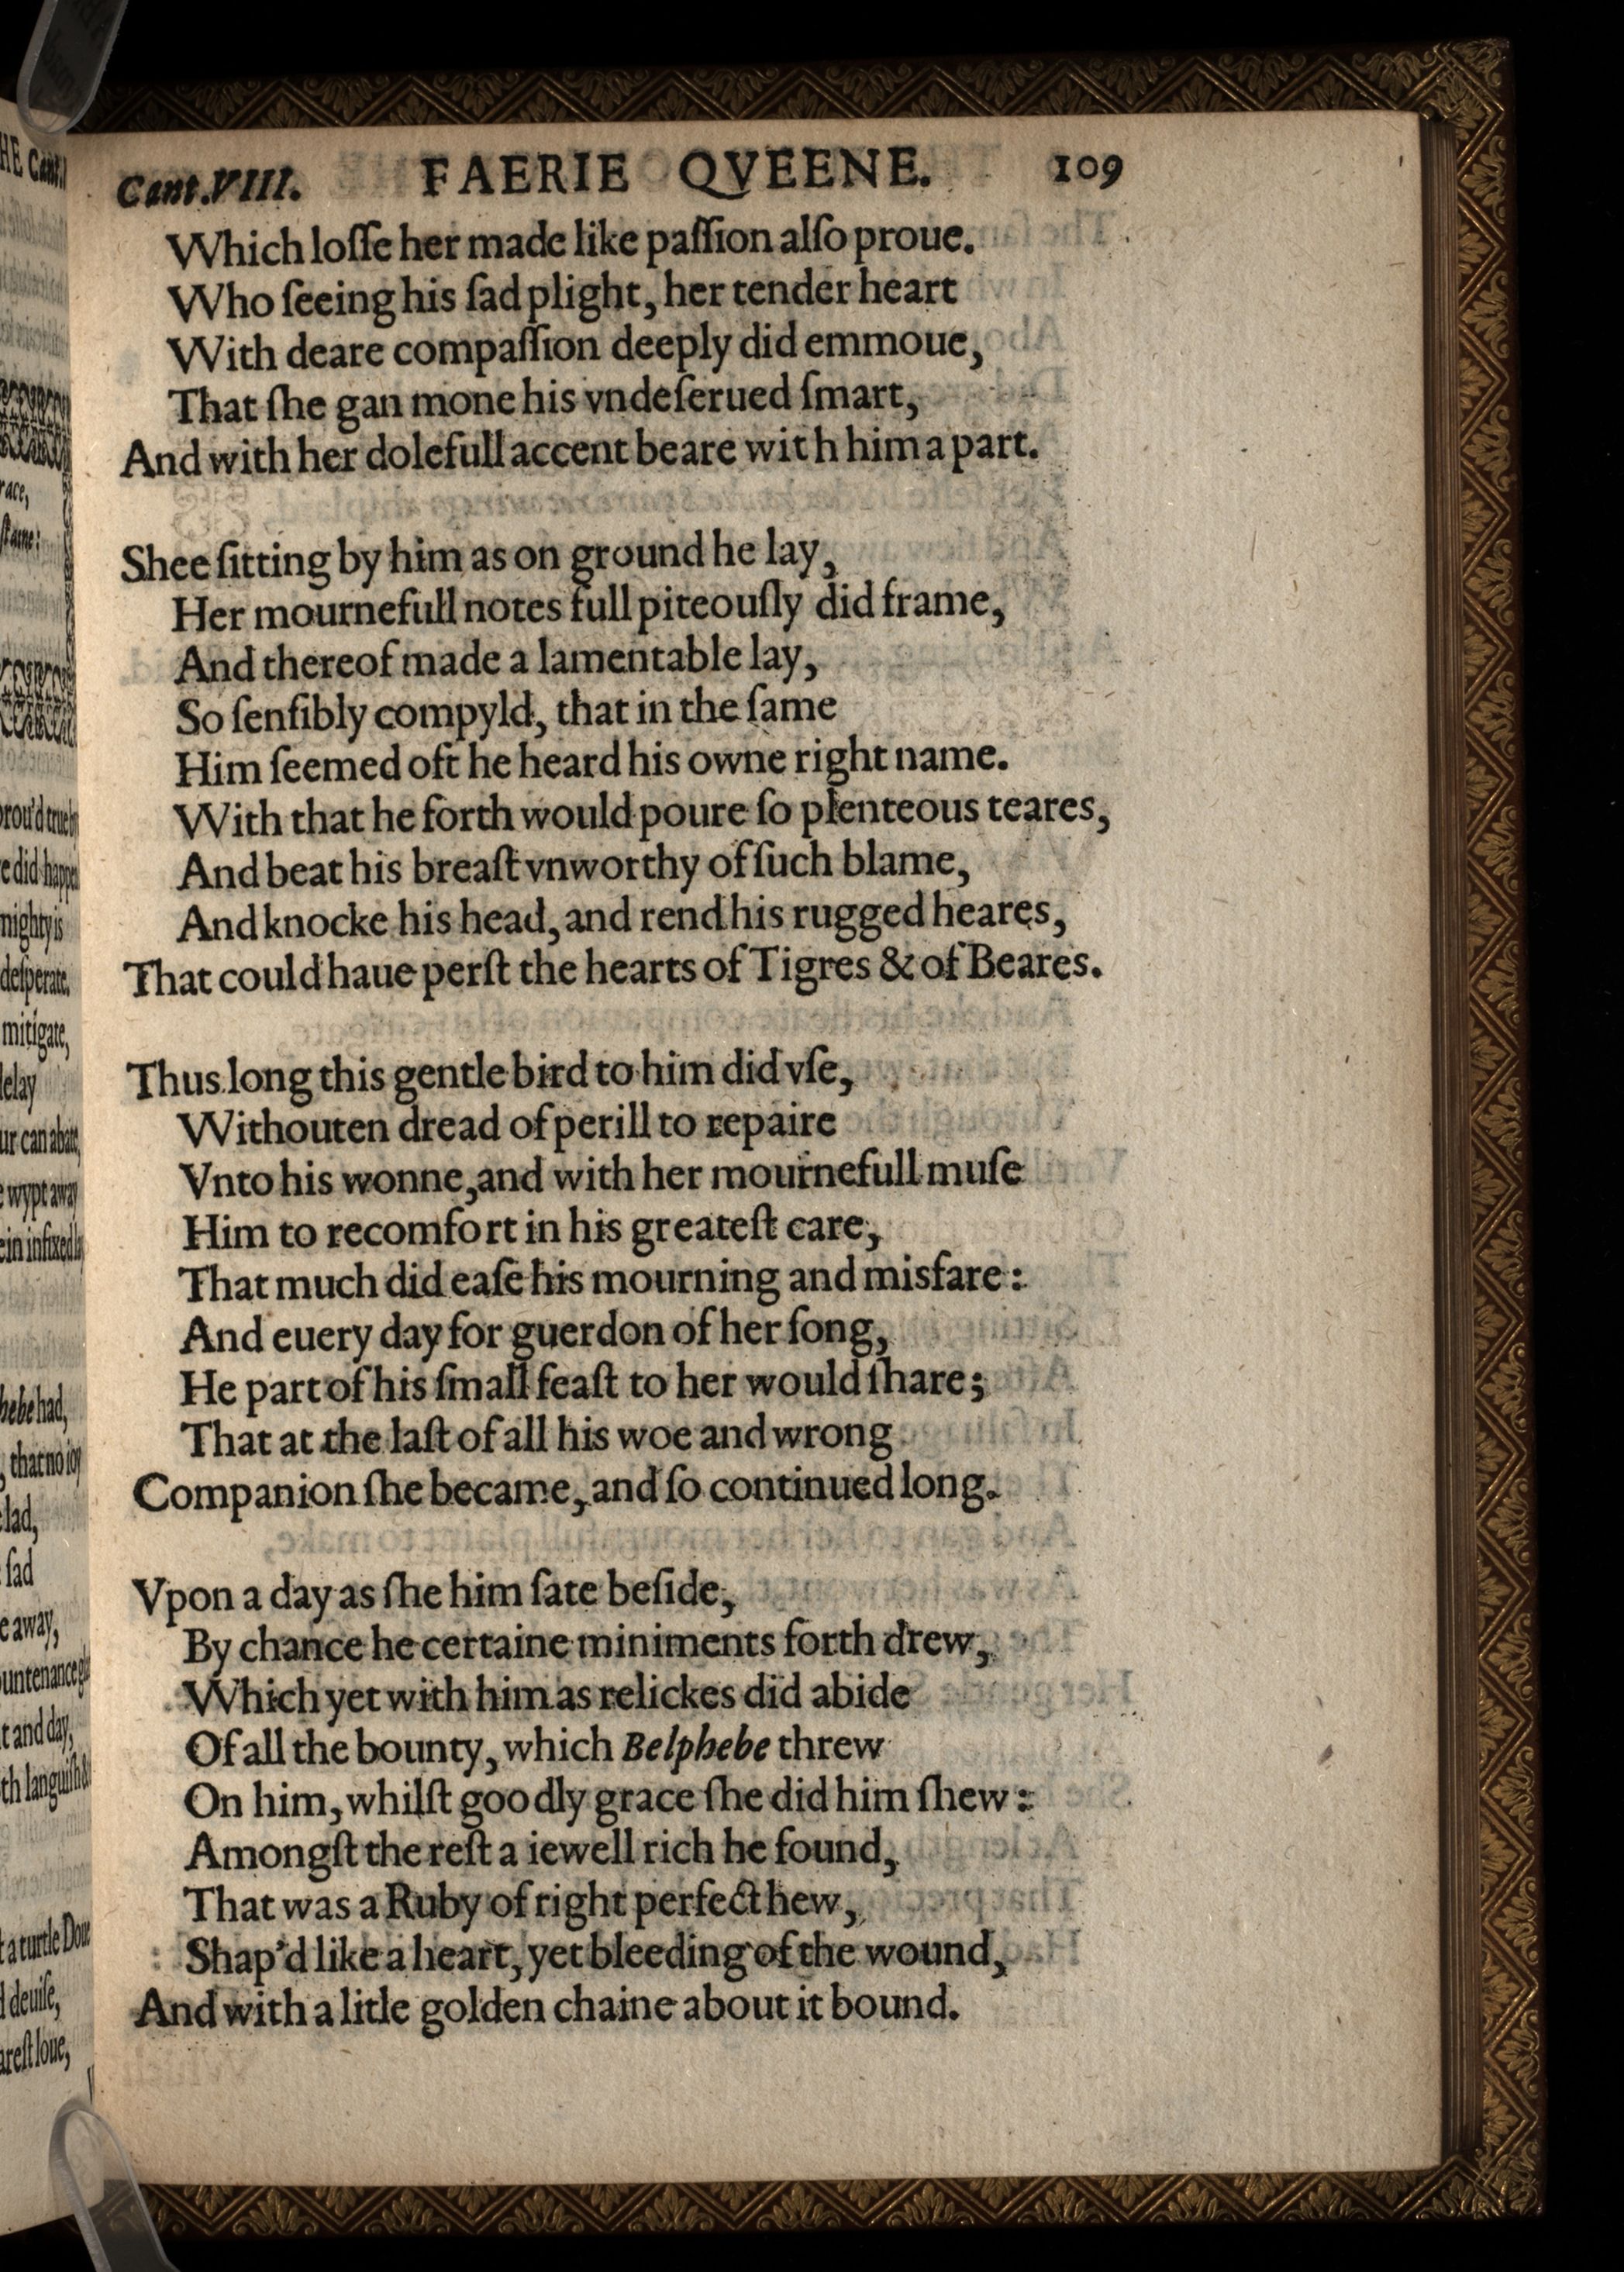 Cant.VIII. FAERIE QVEENE. 109
Which loſſe her made like paſſion alſo proue.
Who ſeeing his ſad plight, her tender heart
With deare compaſſion deeply did emmoue,
That ſhe gan mone his vndeſerued ſmart,
And with her dolefull accent beare with him a part.
Shee ſitting by him as on ground he lay,
Her mournefull notes full piteouſly did frame,
And thereof made a lamentable lay,
So ſenſibly compyld, that in the ſame
Him ſeemed oft he heard his owne right name.
With that he forth would poure ſo plenteous teares,
And beat his breaſt vnworthy of ſuch blame,
And knocke his head, and rend his rugged heares,
That could haue perſt the hearts of Tigres & of Beares.
Thus long this gentle bird to him did vſe,
Withouten dread of perill to repaire
Vnto his wonne, and with her mournefull muſe
Him to recomfort in his greateſt care,
That much did eaſe his mourning and misfare:
And euery day for guerdon of her ſong,
He part of his ſmall feaſt to her would ſhare;
That at the laſt of all his woe and wrong
Companion ſhe became, and ſo continued long.
Vpon a day as ſhe him ſate beſide,
By chance he certaine miniments forth drew,
Which yet with him as relickes did abide
Of all the bounty, which Belphebe threw
On him, whilſt goodly grace ſhe did him ſhew:
Amongſt the reſt a iewell rich he found,
That was a Ruby of right perfect hew,
Shap'd like a heart, yet bleeding of the wound,
And with a litle golden chaine about it bound.